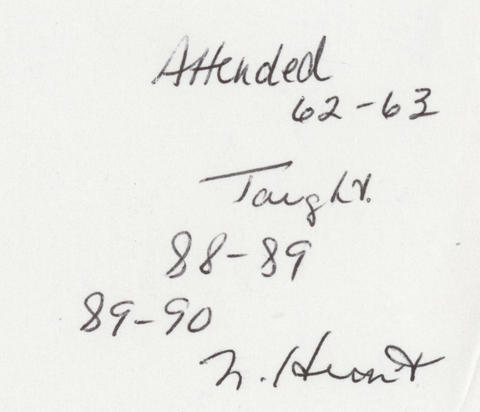 Attended
62-63
Taught.
88-89
89-90
N. Hunt